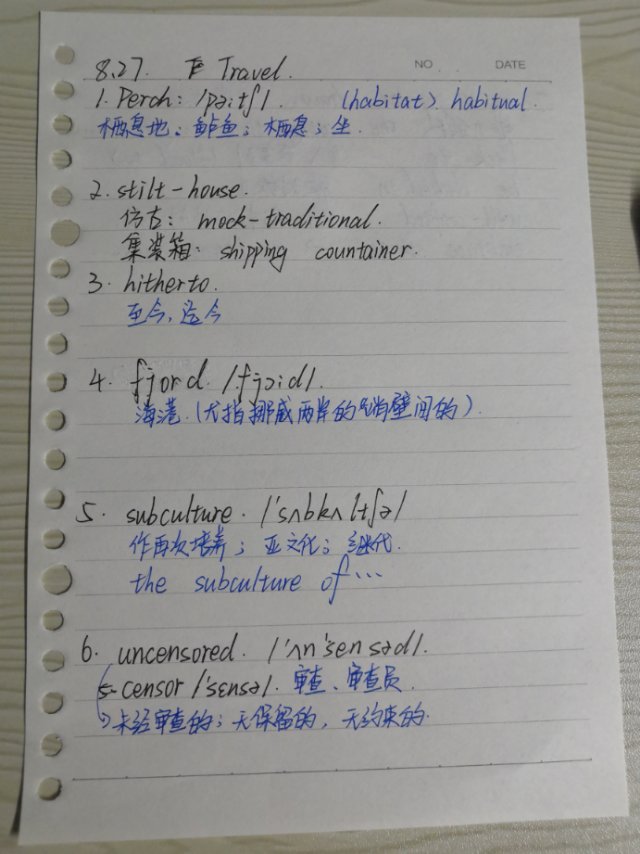 NO. DATE
8.27. Travel.
1. Perch: /pə:tʃ/. (habitat) habitual.
栖息地; 鲈鱼; 栖息; 坐.
2. stilt-house.
仿古: mock-traditional.
集装箱: shipping countainer.
3. hitherto.
至今, 迄今
4. fjord. /fjɔ:d/.
海港. (尤指挪威两岸的峭壁间的).
5. subculture. /'sʌbkʌltʃə/
作再次培养; 亚文化; 继代.
the subculture of ...
6. uncensored. /'ʌn'sensəd/.
censor /'sɛnsə/. 审查、审查员.
未经审查的; 无保留的, 无约束的.